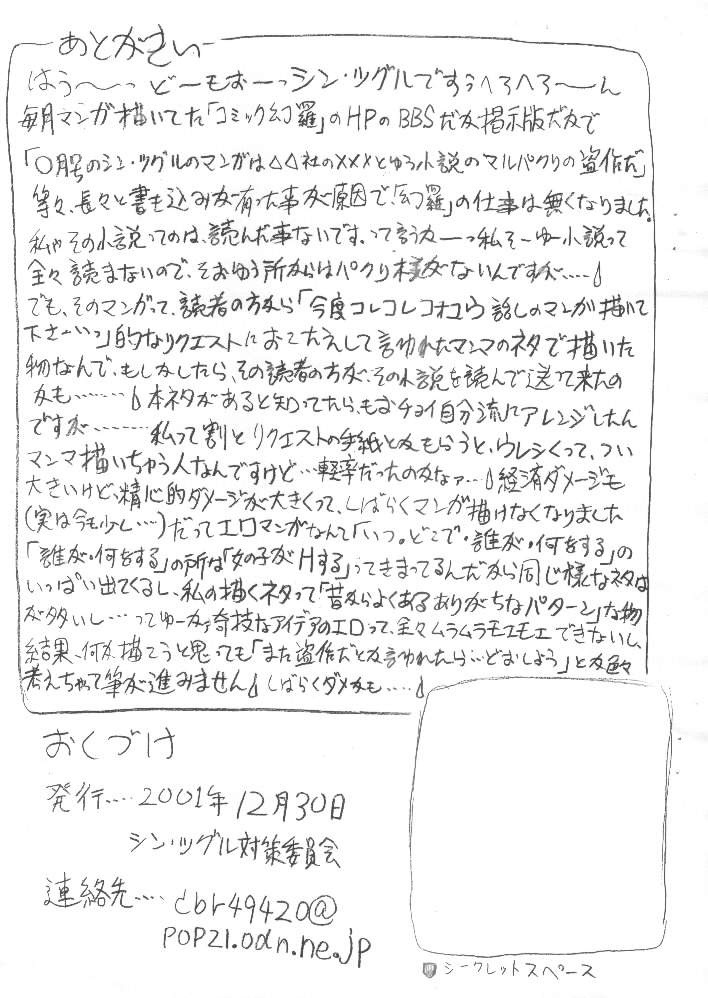 あとがきぃ
はう〜っ どーもおーっシン・ツグルですぅへろへろ〜ん
毎月マンガ描いてた「コミック幻羅」のHPのBBSだか掲示版だかで
「○月号のシン・ツグルのマンガは△△社の×××とゆう小説のマルパクりの盗作だ」
等々、長々と書き込みが有った事が原因で「幻羅」の仕事は無くなりました。
私ゃその小説ってのは、読んだ事ないです、って言うカーっ私そーゆー小説って
全々読まないので、そおゆう所からはパクり様がないんですが‥‥
でも、そのマンガって、読者の方から「今度コレコレコオユウ話しのマンガ描いて
下さーい」的なリクエストにおこたえして言われたマンマのネタで描いた
物なんで、もしかしたら、その読者の方が、その小説を読んで送って来たの
かも‥‥‥ 本ネタがあると知ってたら、もおチョイ自分流にアレンジしたん
ですが‥‥‥ 私って割とリクエストの手紙とかもらうと、ウレシくって、つい
マンマ描いちゃう人なんですけど…軽率だったのかなァ… 経済ダメージも
大きいけど、精心的ダメージが大きくって、しばらくマンが描けなくなりました
(実は今も少し…)だってエロマンガなんて「いつ。どこで・誰が・何をする」の
「誰が・何をする」の所は「女の子がHする」ってきまってるんだから同じ様なネタは
いっぱい出てくるし、私の描くネタって「昔からよくあるありがちなパターン」な物
が多いし…ってゆーかァ奇技なアイデアのエロって、全々ムラムラモエモエできないし、
結果、何か描こうと思っても「また盗作だとか言われたら…どおしよう」とか色々
考えちゃって筆が進みません しばらくダメかも‥‥
おくづけ
発行‥‥2001年12月30日
シン・ツグル対策委員会
連絡先‥‥cbr49420@
pop21.odn.ne.jp
シークレットスペース